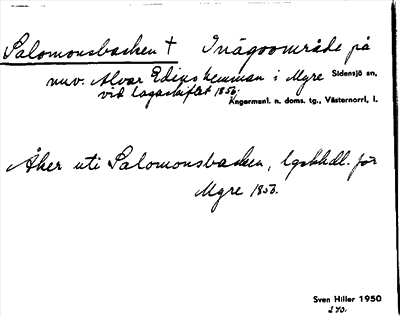 Salomonsbacken † Inägoområde på
nuv. Alvar Edins hemman i Myre Sidensjö sn,
vid lagaskiftet 1853.
Ångermanl. n. doms. tg., Västernorrl. l.
Åker uti Salomonsbacken, lgskhdl. för
Myre 1853.
Sven Hiller 1950
270.